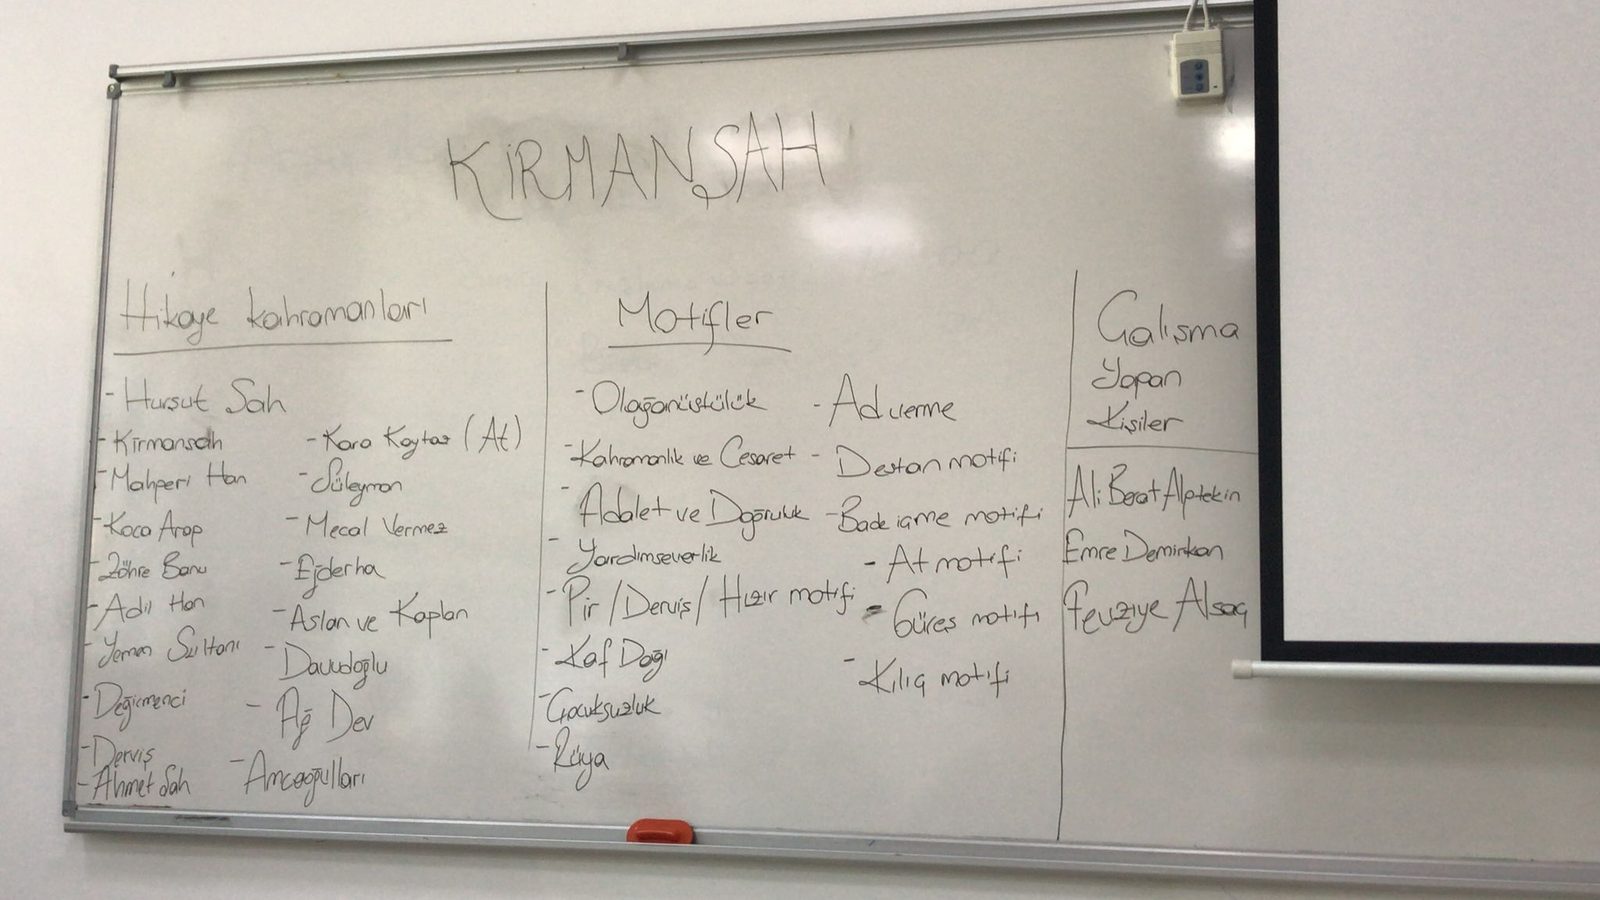 KİRMANŞAH
Hikaye kahramanları
- Hurşut Şah
- Kirmanşah
- Mahperi Han
- Koca Arap
- Zöhre Banu
- Adil Han
- Yemen Sultanı
- Değirmenci
- Derviş
- Ahmet Şah
- Kara Kaytaz (At)
- Süleyman
- Mecal Vermez
- Ejderha
- Aslan ve Kaplan
- Davudoğlu
- Ağ Dev
- Amcaoğulları
Motifler
- Olağanüstülük
- Kahramanlık ve Cesaret
- Adalet ve Doğruluk
- Yardımseverlik
- Pir / Derviş / Hızır motifi
- Kaf Dağı
- Çocuksuzluk
- Rüya
- Ad verme
- Destan motifi
- Bade içme motifi
- At motifi
- Güreş motifi
- Kılıç motifi
Çalışma
Yapan
Kişiler
Ali Berat Alptekin
Emre Demirkan
Fevziye Alsaç